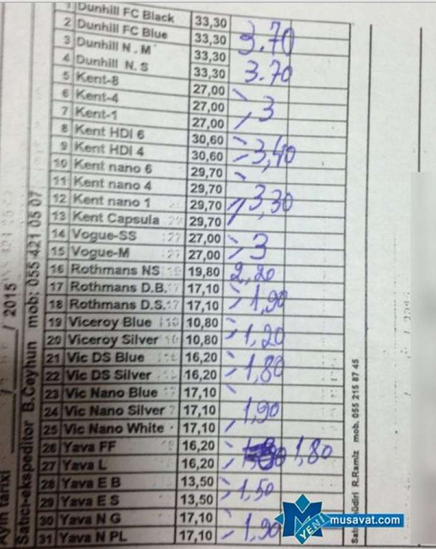 1 Dunhill FC Black 33,30
2 Dunhill FC Blue 33,30 3.70
3 Dunhill N . M 33,30
4 Dunhill N. S 33,30 3.70
5 Kent-8 27,00
6 Kent-4 27,00 3
7 Kent-1 27,00
8 Kent HDI 6 30,60
9 Kent HDI 4 30,60 3,40
10 Kent nano 6 29,70
11 Kent nano 4 29,70
12 Kent nano 1 29,70 3,30
13 Kent Capsula 29,70
14 Vogue-SS 27,00 3
15 Vogue-M 27,00
16 Rothmans NS 19,80 2,20
17 Rothmans D.B. 17,10
18 Rothmans D.S. 17,10 1,90
19 Viceroy Blue 10,80
20 Viceroy Silver 10,80 1,20
21 Vic DS Blue 16,20
22 Vic DS Silver 16,20 1,80
23 Vic Nano Blue 17,10
24 Vic Nano Silver 17,10 1,90
25 Vic Nano White 17,10
26 Yava FF 16,20 1,80
27 Yava L 16,20
28 Yava E B 13,50 1,50
29 Yava E S 13,50
30 Yava N G 17,10
31 Yava N PL 17,10 1,90
tarixi / 2015
Satıcı-ekspeditor B.Ceyhun mob: 055 421 05 07
R.Ramiz mob. 055 215 87 45
YENİ
musavat.com